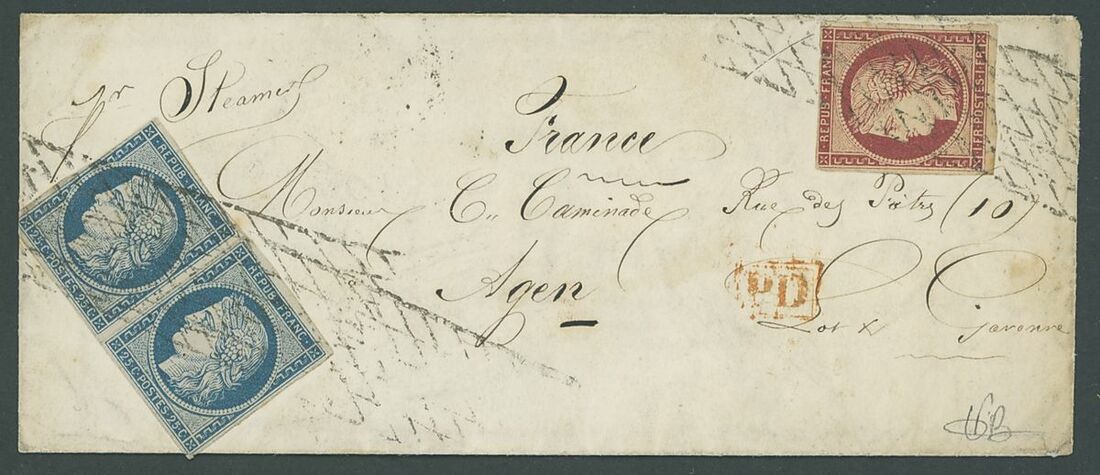 pr Steamer
France
Monsieur Cn Caminade Rue des (10)
Agen
Lot & Garonne
PD
REPUB·FRANC·
1·FR·POSTES·1·FR·
REPUB·FRANC·
25·C·POSTES·25·C·
REPUB·FRANC·
25·C·POSTES·25·C·